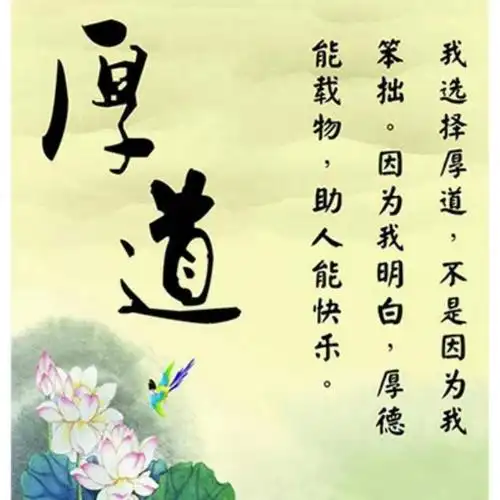 厚道
我选择厚道，不是因为我
笨拙。因为我明白，厚德
能载物，助人能快乐。